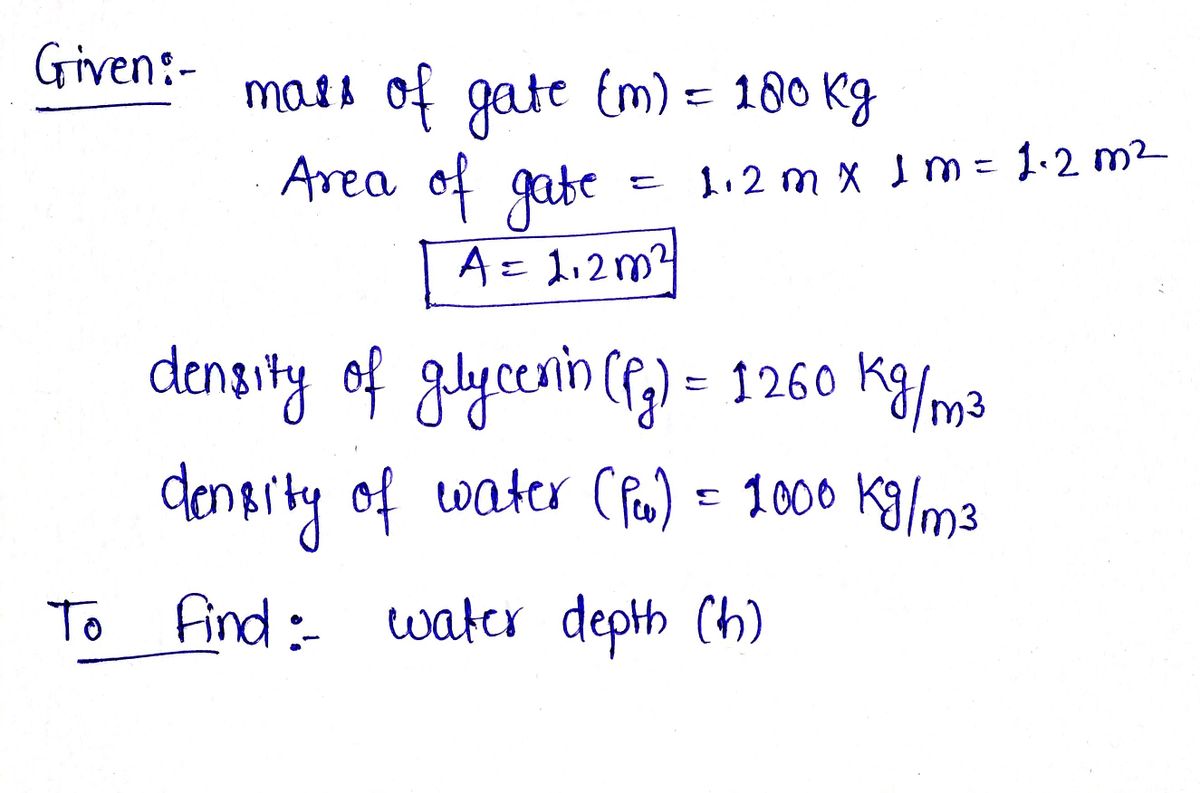 Given:-
mass of gate (m) = 180 Kg
Area of gate = 1.2 m x 1 m = 1.2 m²
A = 1.2 m²
density of glycerin (ρg) = 1260 Kg/m3
density of water (ρw) = 1000 Kg/m3
To find :- water depth (h)